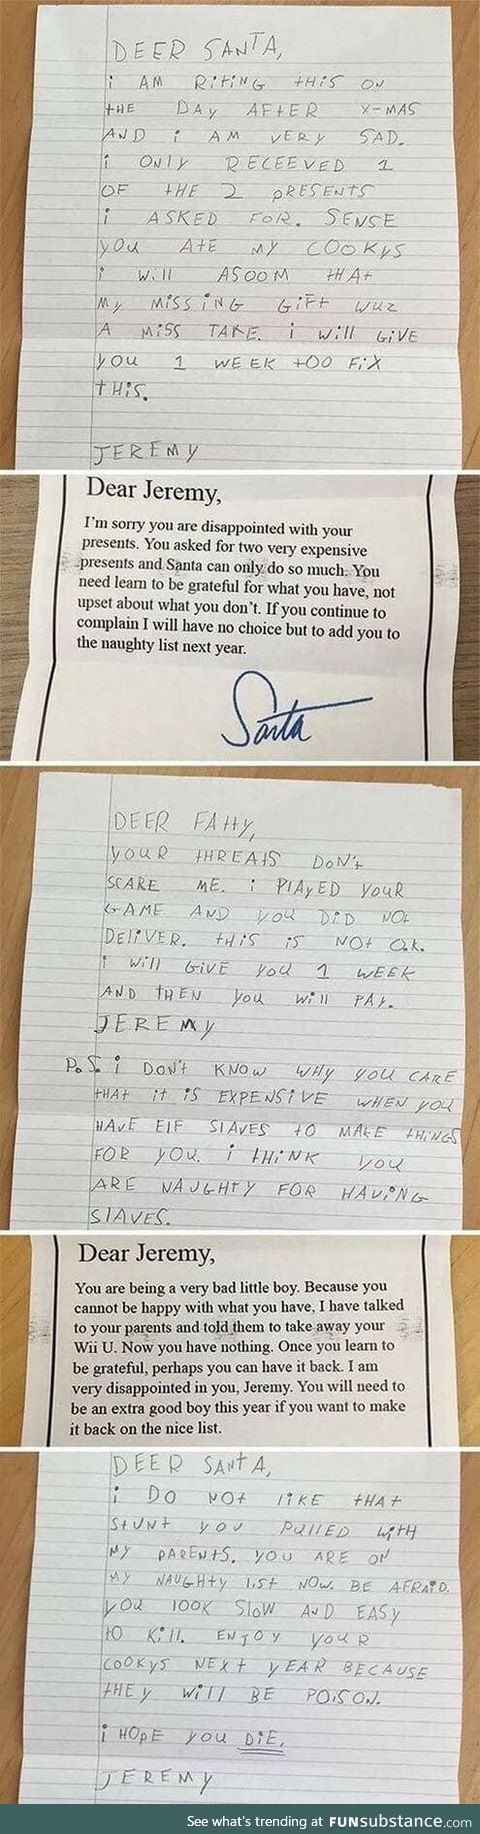 DEER SANTA,
i AM RiTiNG tHiS ON
tHE DAY AFTER X-MAS
AND i AM VERY SAD.
i ONLY RECEEVED 1
OF tHE 2 PRESENTS
i ASKED FOR. SENSE
YOU AtE MY COOKYS
i Will ASOOM tHAt
MY MiSSiNG GiFt WUZ
A MiSS TAKE. i Will GiVE
YOU 1 WEEK tOO FiX
tHiS.
JEREMY
Dear Jeremy,
I'm sorry you are disappointed with your
presents. You asked for two very expensive
presents and Santa can only do so much. You
need learn to be grateful for what you have, not
upset about what you don't. If you continue to
complain I will have no choice but to add you to
the naughty list next year.
Santa
DEER FAttY,
YOUR tHREAtS DON't
SCARE ME. i PlAYED YOUR
GAME AND YOU DiD NOt
DEliVER. tHiS iS NOt O.K.
i Will GiVE YOU 1 WEEK
AND tHEN YOU Will PAY.
JEREMY
P.S. i DON't KNOW WHY YOU CARE
tHAt it iS EXPENSiVE WHEN YOU
HAVE ElF SlAVES tO MAKE tHiNGS
FOR YOU. i tHiNK YOU
ARE NAUGHtY FOR HAViNG
SlAVES.
Dear Jeremy,
You are being a very bad little boy. Because you
cannot be happy with what you have, I have talked
to your parents and told them to take away your
Wii U. Now you have nothing. Once you learn to
be grateful, perhaps you can have it back. I am
very disappointed in you, Jeremy. You will need to
be an extra good boy this year if you want to make
it back on the nice list.
DEER SANtA,
i DO NOt liKE tHAt
StUNt YOU PUllED WitH
MY PARENtS. YOU ARE ON
MY NAUGHtY liSt NOW. BE AFRAiD.
YOU lOOK SlOW AND EASY
tO Kill. ENJOY YOUR
COOKYS NEXt YEAR BECAUSE
tHEY Will BE POiSON.
i HOPE YOU DiE.
JEREMY
See what's trending at FUNsubstance.com